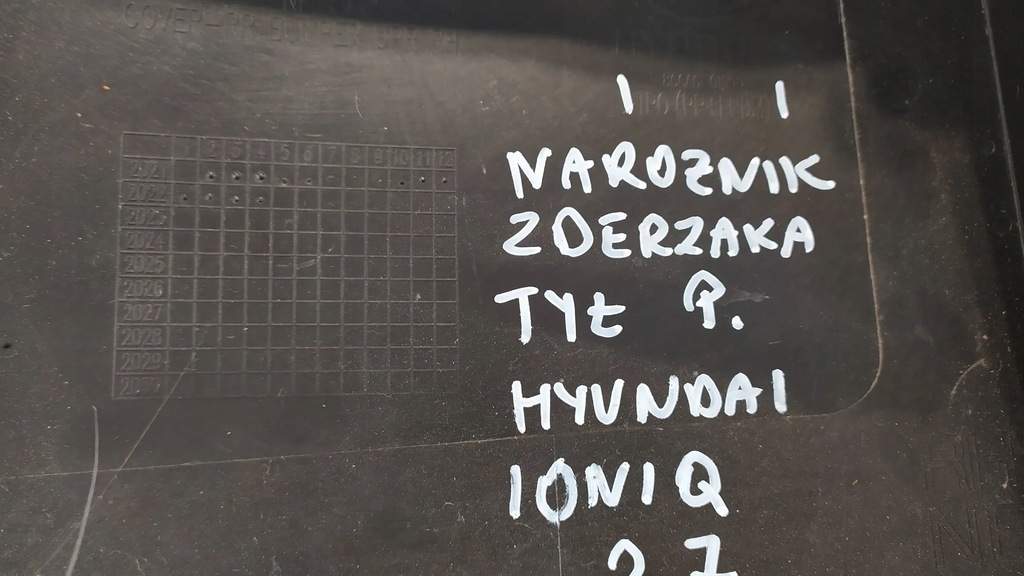 COVER-RR BUMPER
1 2 3 4 5 6 7 8 9 10 11 12
2021
2022
2023
2024
2025
2026
2027
2028
2029
I I
NAROŻNIK
ZDERZAKA
TYŁ P.
HYUNDAI
IONIQ